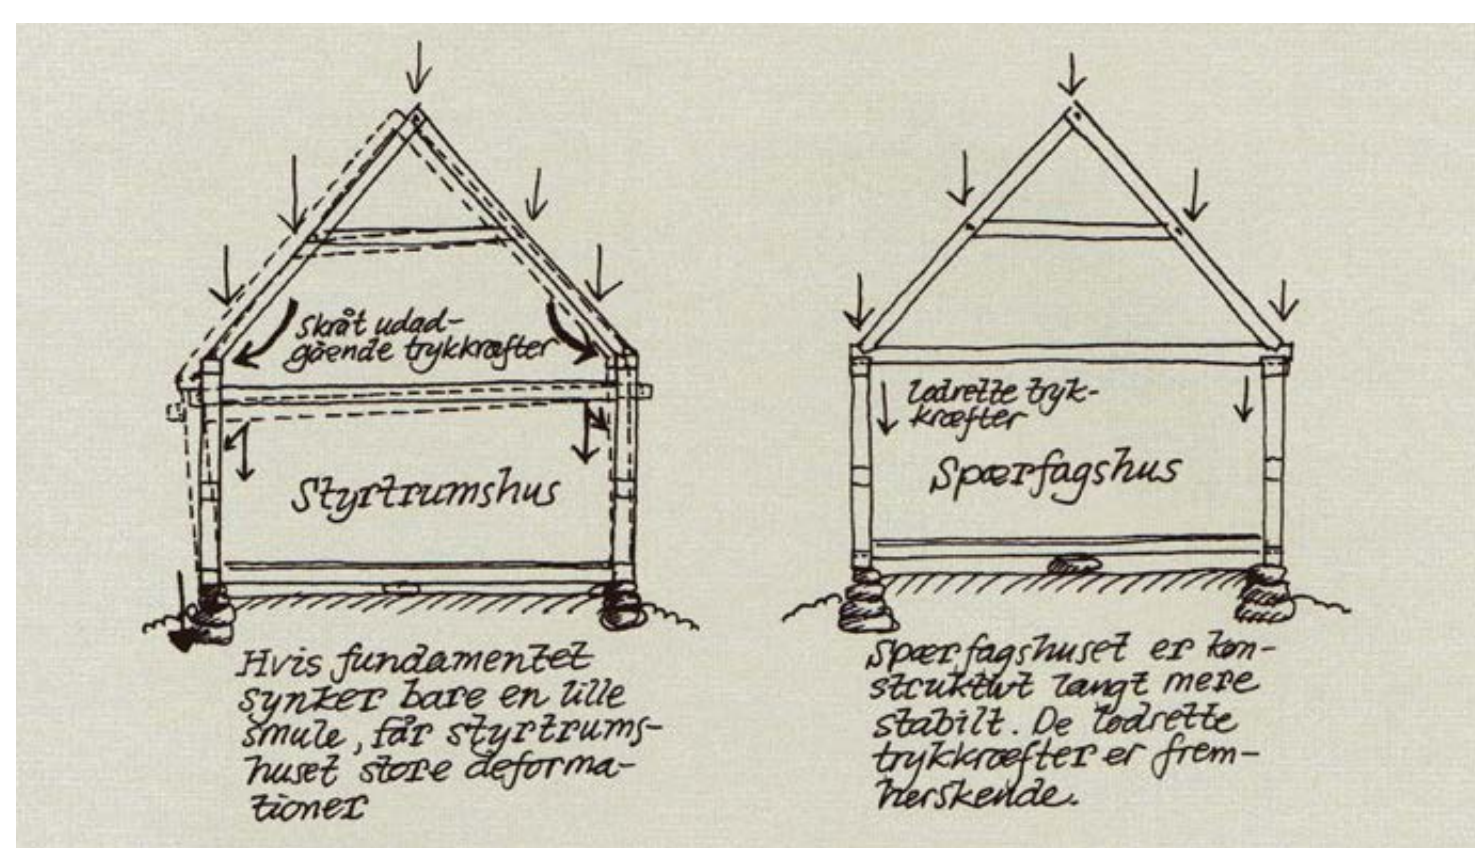 Skråt udad-
gående trykkræfter
Styrtrumshus
Hvis fundamentet
synker bare en lille
smule, får styrtrums-
huset store deforma-
tioner
Lodrette tryk-
kræfter
Spærfagshus
Spærfagshuset er kon-
struktivt langt mere
stabilt. De lodrette
trykkræfter er frem-
herskende.